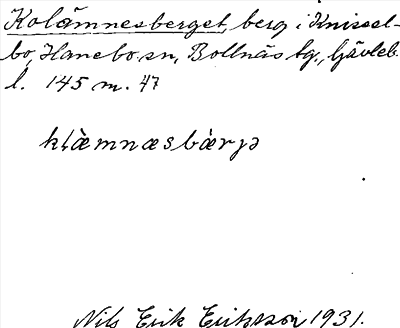 Kolämnesberget, berg i Knissel-
bo, Hanebo sn, Bollnäs tg., Gävleb.
l. 145 m. 47
kḷæ̀mnæsbæ̀rjə
Nils Erik Eriksson 1931.